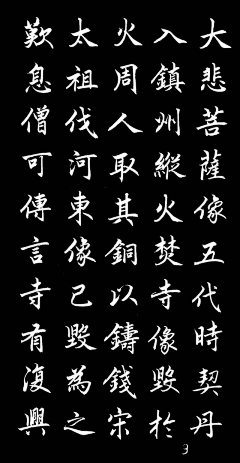 大悲菩薩像五代時契丹
入鎮州縱火焚寺像毀於
火周人取其銅以鑄錢宋
太祖伐河東像已毀為之
歎息僧可傳言寺有復興
3